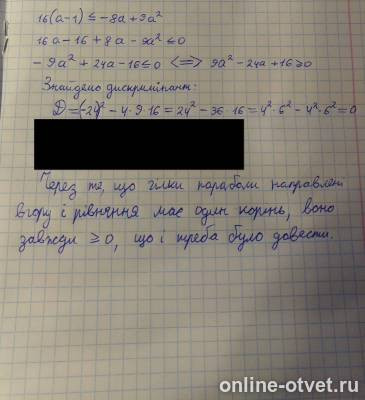 16(a-1) ≤ -8a + 9a²
16a - 16 + 8a - 9a² ≤ 0
- 9a² + 24a - 16 ≤ 0 <=> 9a² - 24a + 16 ≥ 0
Знайдемо дискримінант:
D = (-24)² - 4·9·16 = 24² - 36·16 = 4²·6² - 4²·6² = 0
Через те, що гілки параболи направлені
вгору і рівняння має один корінь, воно
завжди ≥ 0, що і треба було довести.
online-otvet.ru